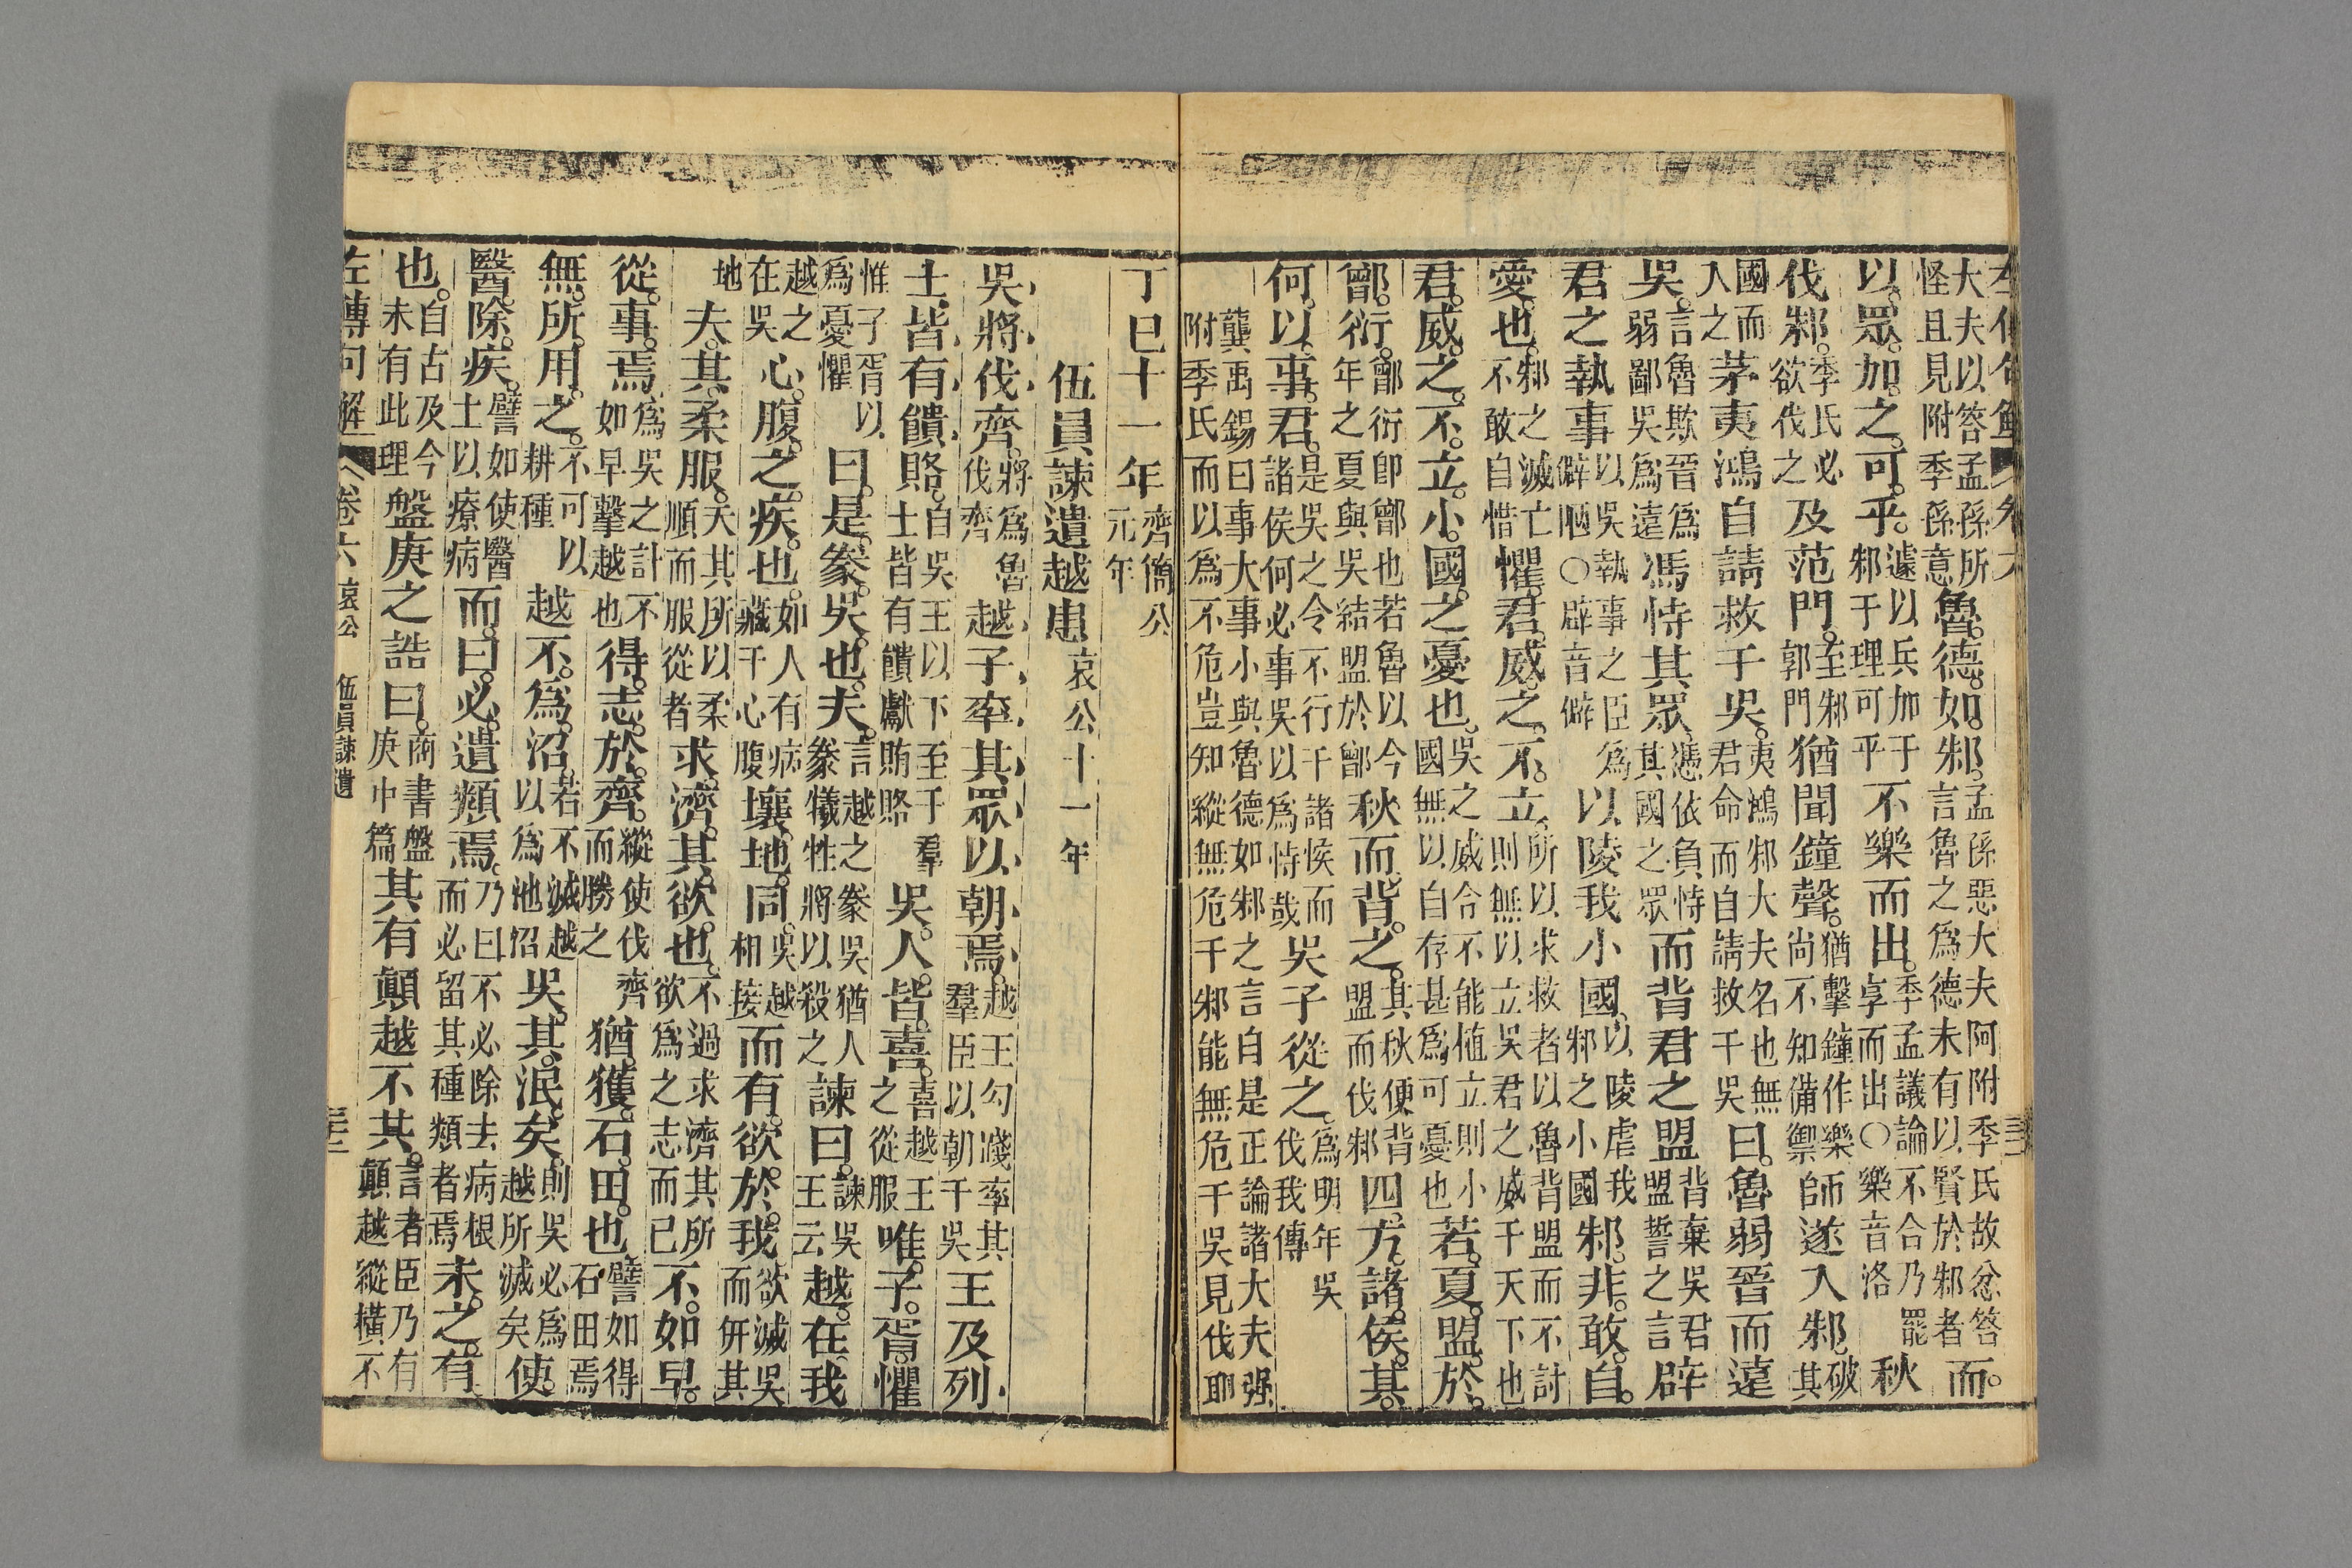 大夫以答孟孫所怪且見附季孫意魯德如邾孟孫惡大夫阿附季氏故忿答言魯之爲德未有以賢於邾者而
以眾加之可乎遽以兵加于邾于理可乎不樂而出季孟議論不合乃罷享而出○樂音洛秋
伐邾季氏必欲伐之及范門至邾郭門猶聞鐘聲猶擊鐘作樂尚不知備禦師遂入邾破其
國而入之茅夷鴻自請救于吳夷鴻邾大夫名也無君命而自請救于吳曰魯弱晉而遠
吳言魯欺晉爲弱鄙吳爲遠馮恃其眾憑依負恃其國之眾而背君之盟背棄吳君盟誓之言辟
君之執事以吳執事之臣爲僻陋○辟音僻以陵我小國以陵虐我邾之小國邾非敢自
愛也邾之滅亡不敢自惜懼君威之不立所以求救者以魯背盟而不討則無以立吳君之威于天下也
君威之不立小國之憂也吳之威令不能植立則小國無以自存甚爲可憂也若夏盟於
鄫衍鄫衍卽鄫也若魯以今年之夏與吳結盟於鄫秋而背之其秋便背盟而伐邾四方諸侯其
何以事君是吳之令不行于諸侯而諸侯何必事吳以爲恃哉吳子從之爲明年吳伐我傳
龔禹錫曰事大事小與魯德如邾之言自是正論諸大夫强附季氏而以爲不危豈知縱無危于邾能無危于吳見伐耶
丁巳十一年齊簡公元年
伍員諫遺越患哀公十一年
吳將伐齊將爲魯伐齊越子率其眾以朝焉越王勾踐率其羣臣以朝于吳王及列
士皆有饋賂自吳王以下至于羣士皆有饋獻賄賂吳人皆喜喜越王之從服唯子胥懼
惟子胥以爲憂懼曰是豢吳也夫言越之豢吳猶人豢犧牲將以殺之諫曰諫吳王云越在我
越之在吳心腹之疾也如人有病藏于心腹壤地同吳越相接而有欲於我欲滅吳而倂其
地夫其柔服夫其所以柔順而服從者求濟其欲也不過求濟其所欲爲之志而已不如早
從事焉爲吳之計不如早擊越也得志於齊縱使伐齊而勝之猶獲石田也譬如得石田焉
無所用之不可以耕種越不爲沼若不滅越以爲池沼吳其泯矣則吳必爲越所滅矣使
醫除疾譬如使醫士以療病而曰必遺類焉乃曰不必除去病根而必留其種類者焉未之有
也自古及今未有此理盤庚之誥曰商書盤庚中篇其有顚越不共言者臣乃有顚越縱橫不
左傳句解 卷六 哀公 伍員諫遺 三十二